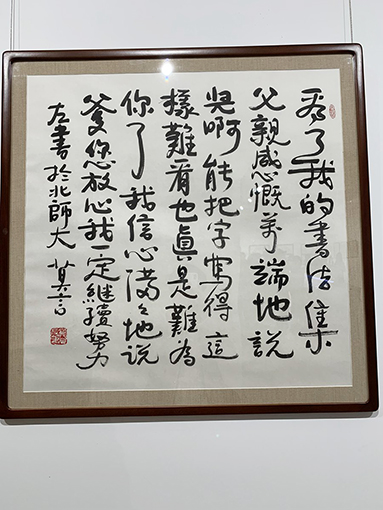 看了我的書法集
父親感慨萬端地說
兒啊能把字寫得這
樣難看也真是難為
你了我信心滿々地說
爹您放心我一定繼續努力
左書於北師大 莫言